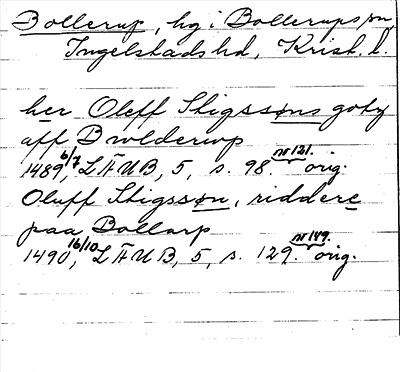 Bollerup, hg i Bollerups sn,
Ingelstads hd, Krist. l.
her Oleff Stigssøns gotz
aff Bwlderwp
1489 6/7, LÄUB, 5, s. 98. nr 121. orig.
Oluff Stigssøn, riddere
paa Bollarp
1490 16/10, LÄUB, 5, s. 129. nr 149. orig.